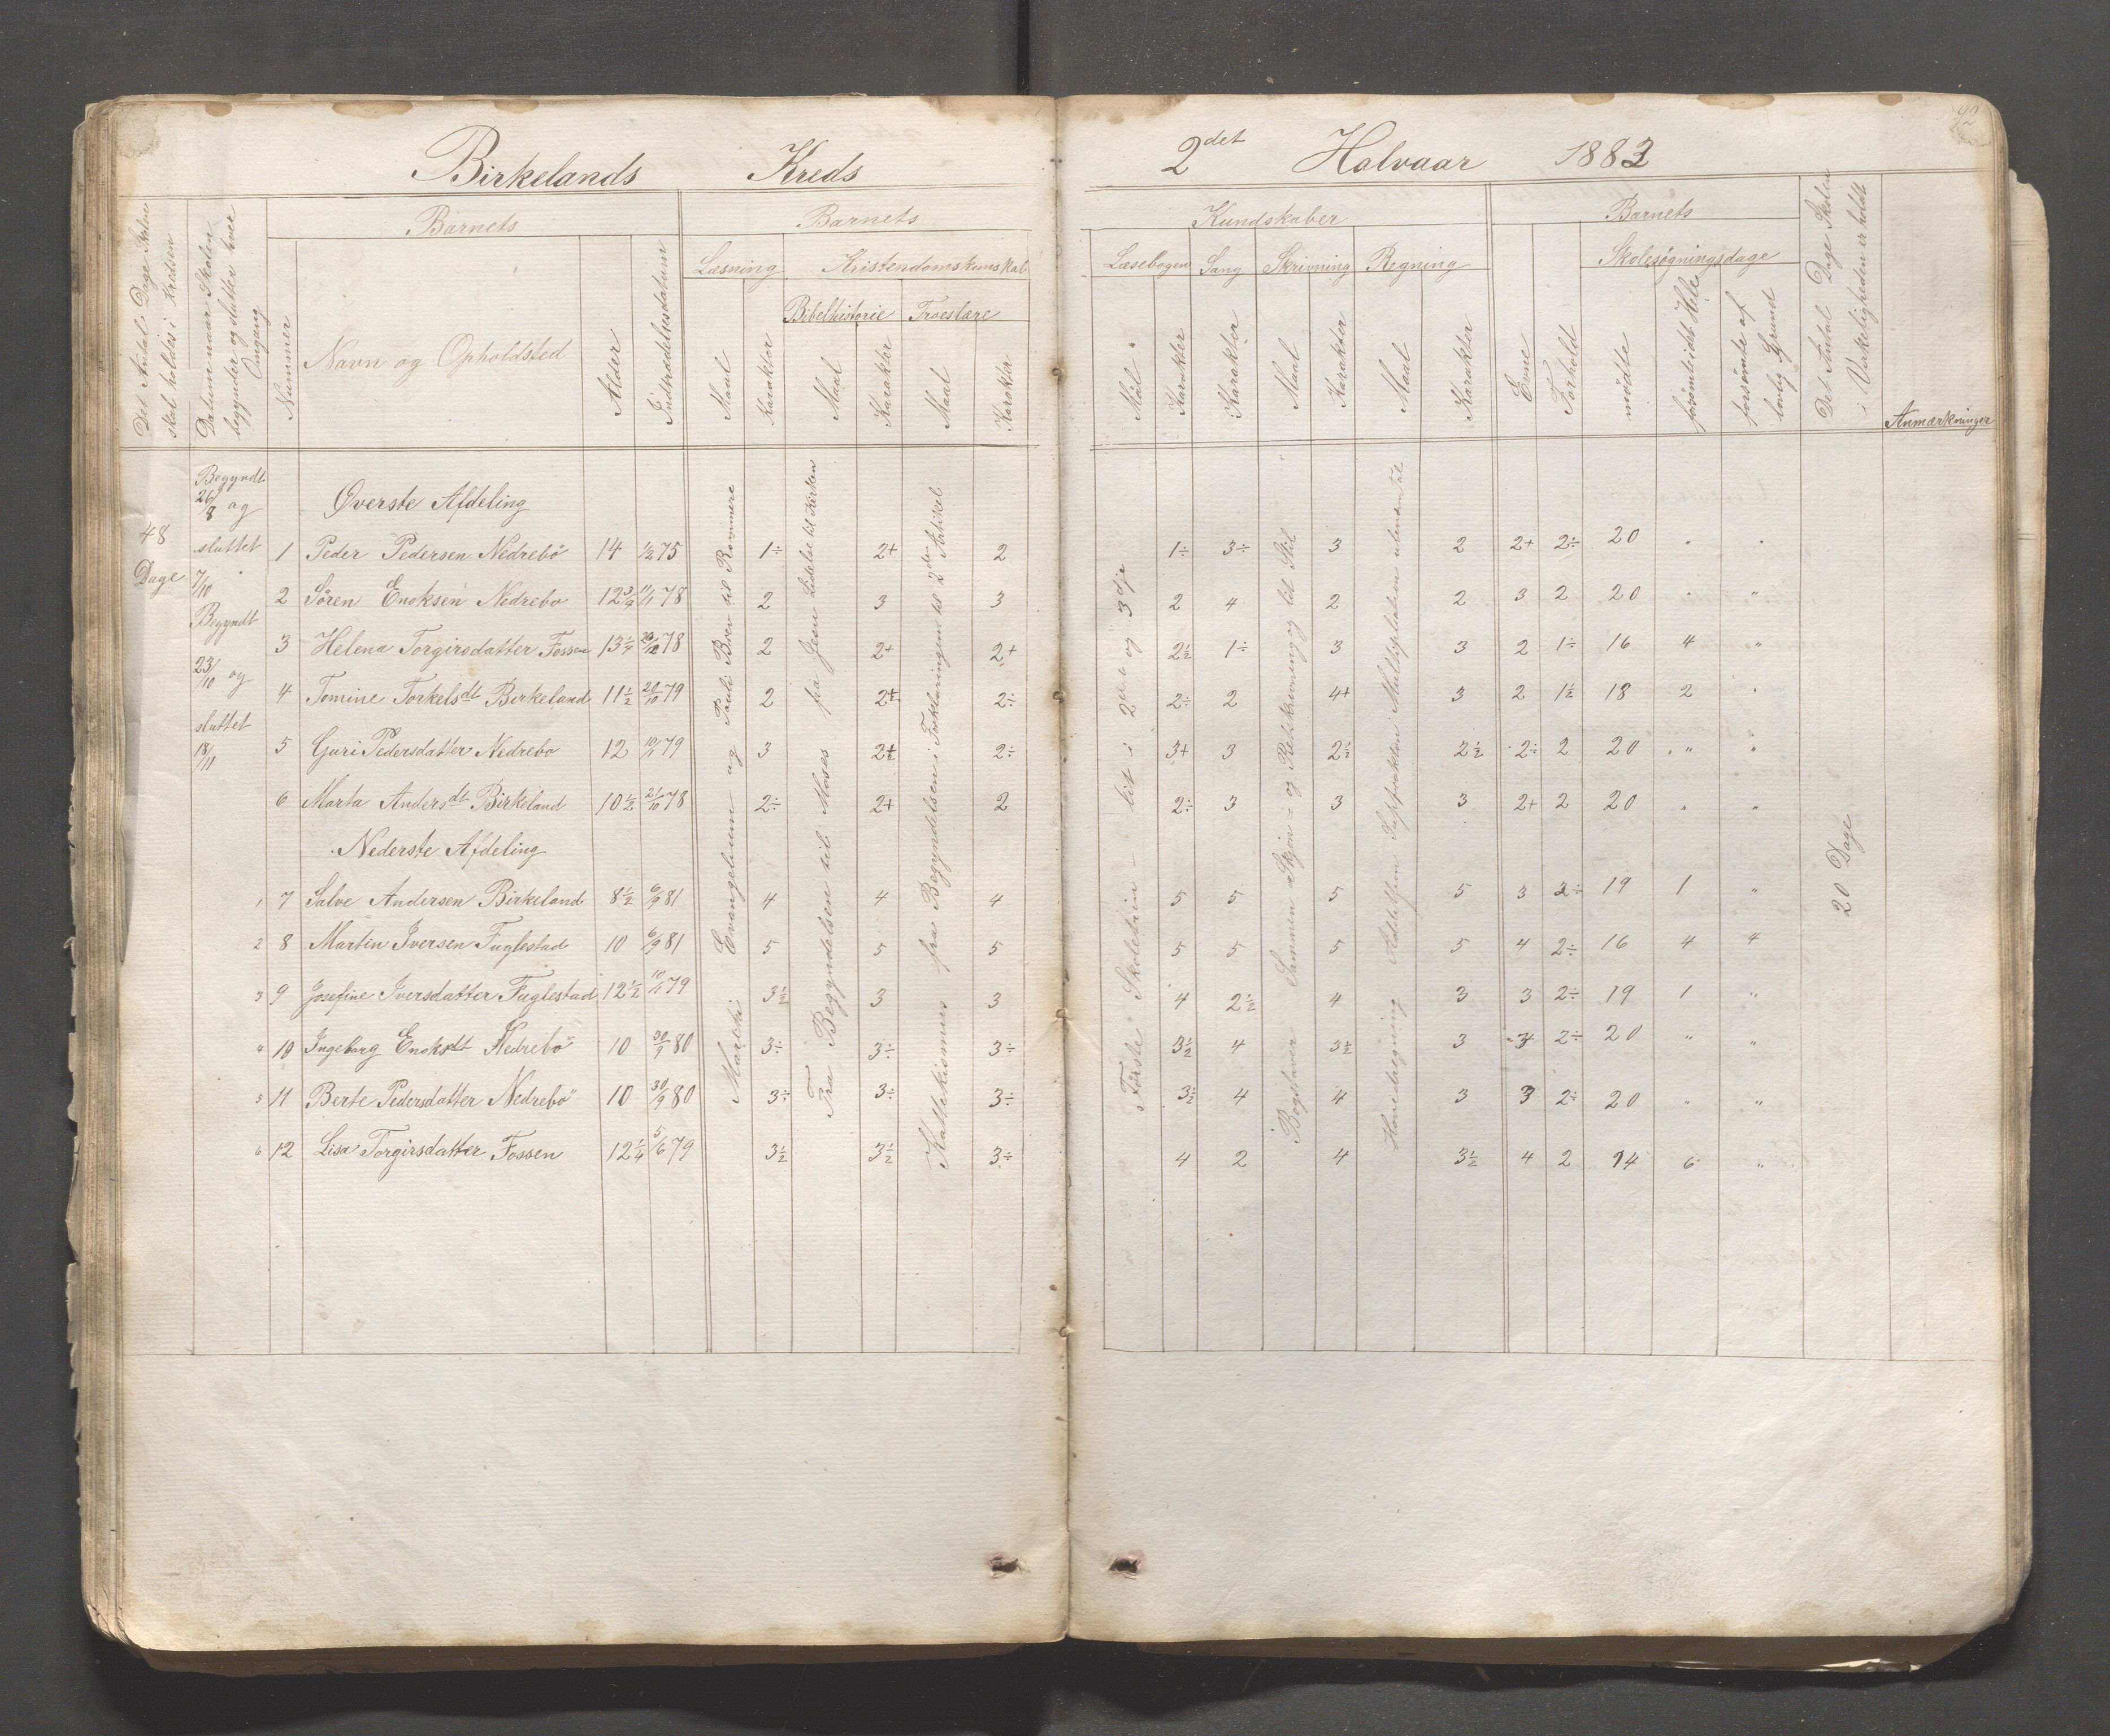 Birkelands Kreds
2det Halvaar 1883
92
Det Antal Dage Skolen skal holdes i Kredsen
Datum naar Skolen begynder og slutter hver Omgang
Barnets
Nummer
Navn og Opholdsted
Alder
Indtrædelsesdatum
Barnets
Kundskaber
Læsning
Maal
Karakter
Kristendomskunskab
Bibelhistorie
Maal
Karakter
Troeslære
Maal
Karakter
Læsebogen
Mål
Karakter
Sang
Karakter
Skrivning
Maal
Karakter
Regning
Maal
Karakter
Barnets
Evne
Forhold
Skolesøgningsdage
mødte
forsømte af lovlig Grund
Det Antal Dage Skolen i Virkeligheden er holdt
Anmærkninger
48 Dage
Begyndt 26/8 og sluttet 7/10
Begyndt 23/10 og sluttet 18/11
Marcki Evangelium og Pauli Brev til Rommere
Fra Begyndelsen til Moses fra Jesu Lidelse til Kirken
Kattekismus fra Begyndelsen i Forklaringen til 2den Artikel
Første Skoletrin - lit i 2det og 3dje
Bogstaver Sammen Skjøn- og Retskrivning og lit Stil
Hovedregning Addition Suptraktion Multiplikation ubenævnt Tal
20 Dage
Øverste Afdeling
1 Peder Pedersen Nedrebö 14 1/2 75 1÷ 2+ 2 1÷ 3÷ 3 2 2+ 2÷ 20 " "
2 Sören Enoksen Nedrebo 12 3/4 11/1 78 2 3 3 2 4 2 2 3 2 20 " "
3 Helena Torgirsdatter Fossen 13 1/4 20/12 78 2 2+ 2+ 2½ 1÷ 3 3 2 1÷ 16 4 "
4 Tomine Torkelsdt Birkeland 11½ 20/10 79 2 2+ 2÷ 2÷ 2 4+ 3 2 1½ 18 2 "
5 Guri Pedersdatter Nedrebo 12 10/1 79 3 2+ 2÷ 3+ 3 2½ 2½ 2÷ 2 20 " "
6 Marta Andersdt Birkeland 10½ 21/10 78 2÷ 2+ 2 2÷ 3 3 3 2+ 2 20 " "
Nederste Afdeling
1 7 Salve Andersen Birkeland 8½ 6/9 81 4 4 4 5 5 5 5 3 2÷ 19 1 "
2 8 Martin Iversen Fuglestad 10 6/9 81 5 5 5 5 5 5 5 4 2÷ 16 4 4
3 9 Josefine Iversdatter Fuglestad 12½ 10/1 79 3½ 3 3 4 2½ 4 3 3 2÷ 19 1 "
4 10 Ingeborg Enoksdt Nedrebö 10 30/9 80 3÷ 3÷ 3÷ 3½ 4 3½ 3 3 2÷ 20 " "
5 11 Berte Pedersdatter Nedrebö 10 30/9 80 3÷ 3÷ 3÷ 3½ 4 4 3 3 2÷ 20 " "
6 12 Lisa Torgirsdatter Fossen 12¼ 5/6 79 3½ 3½ 3÷ 4 2 4 3½ 4 2 14 6 "